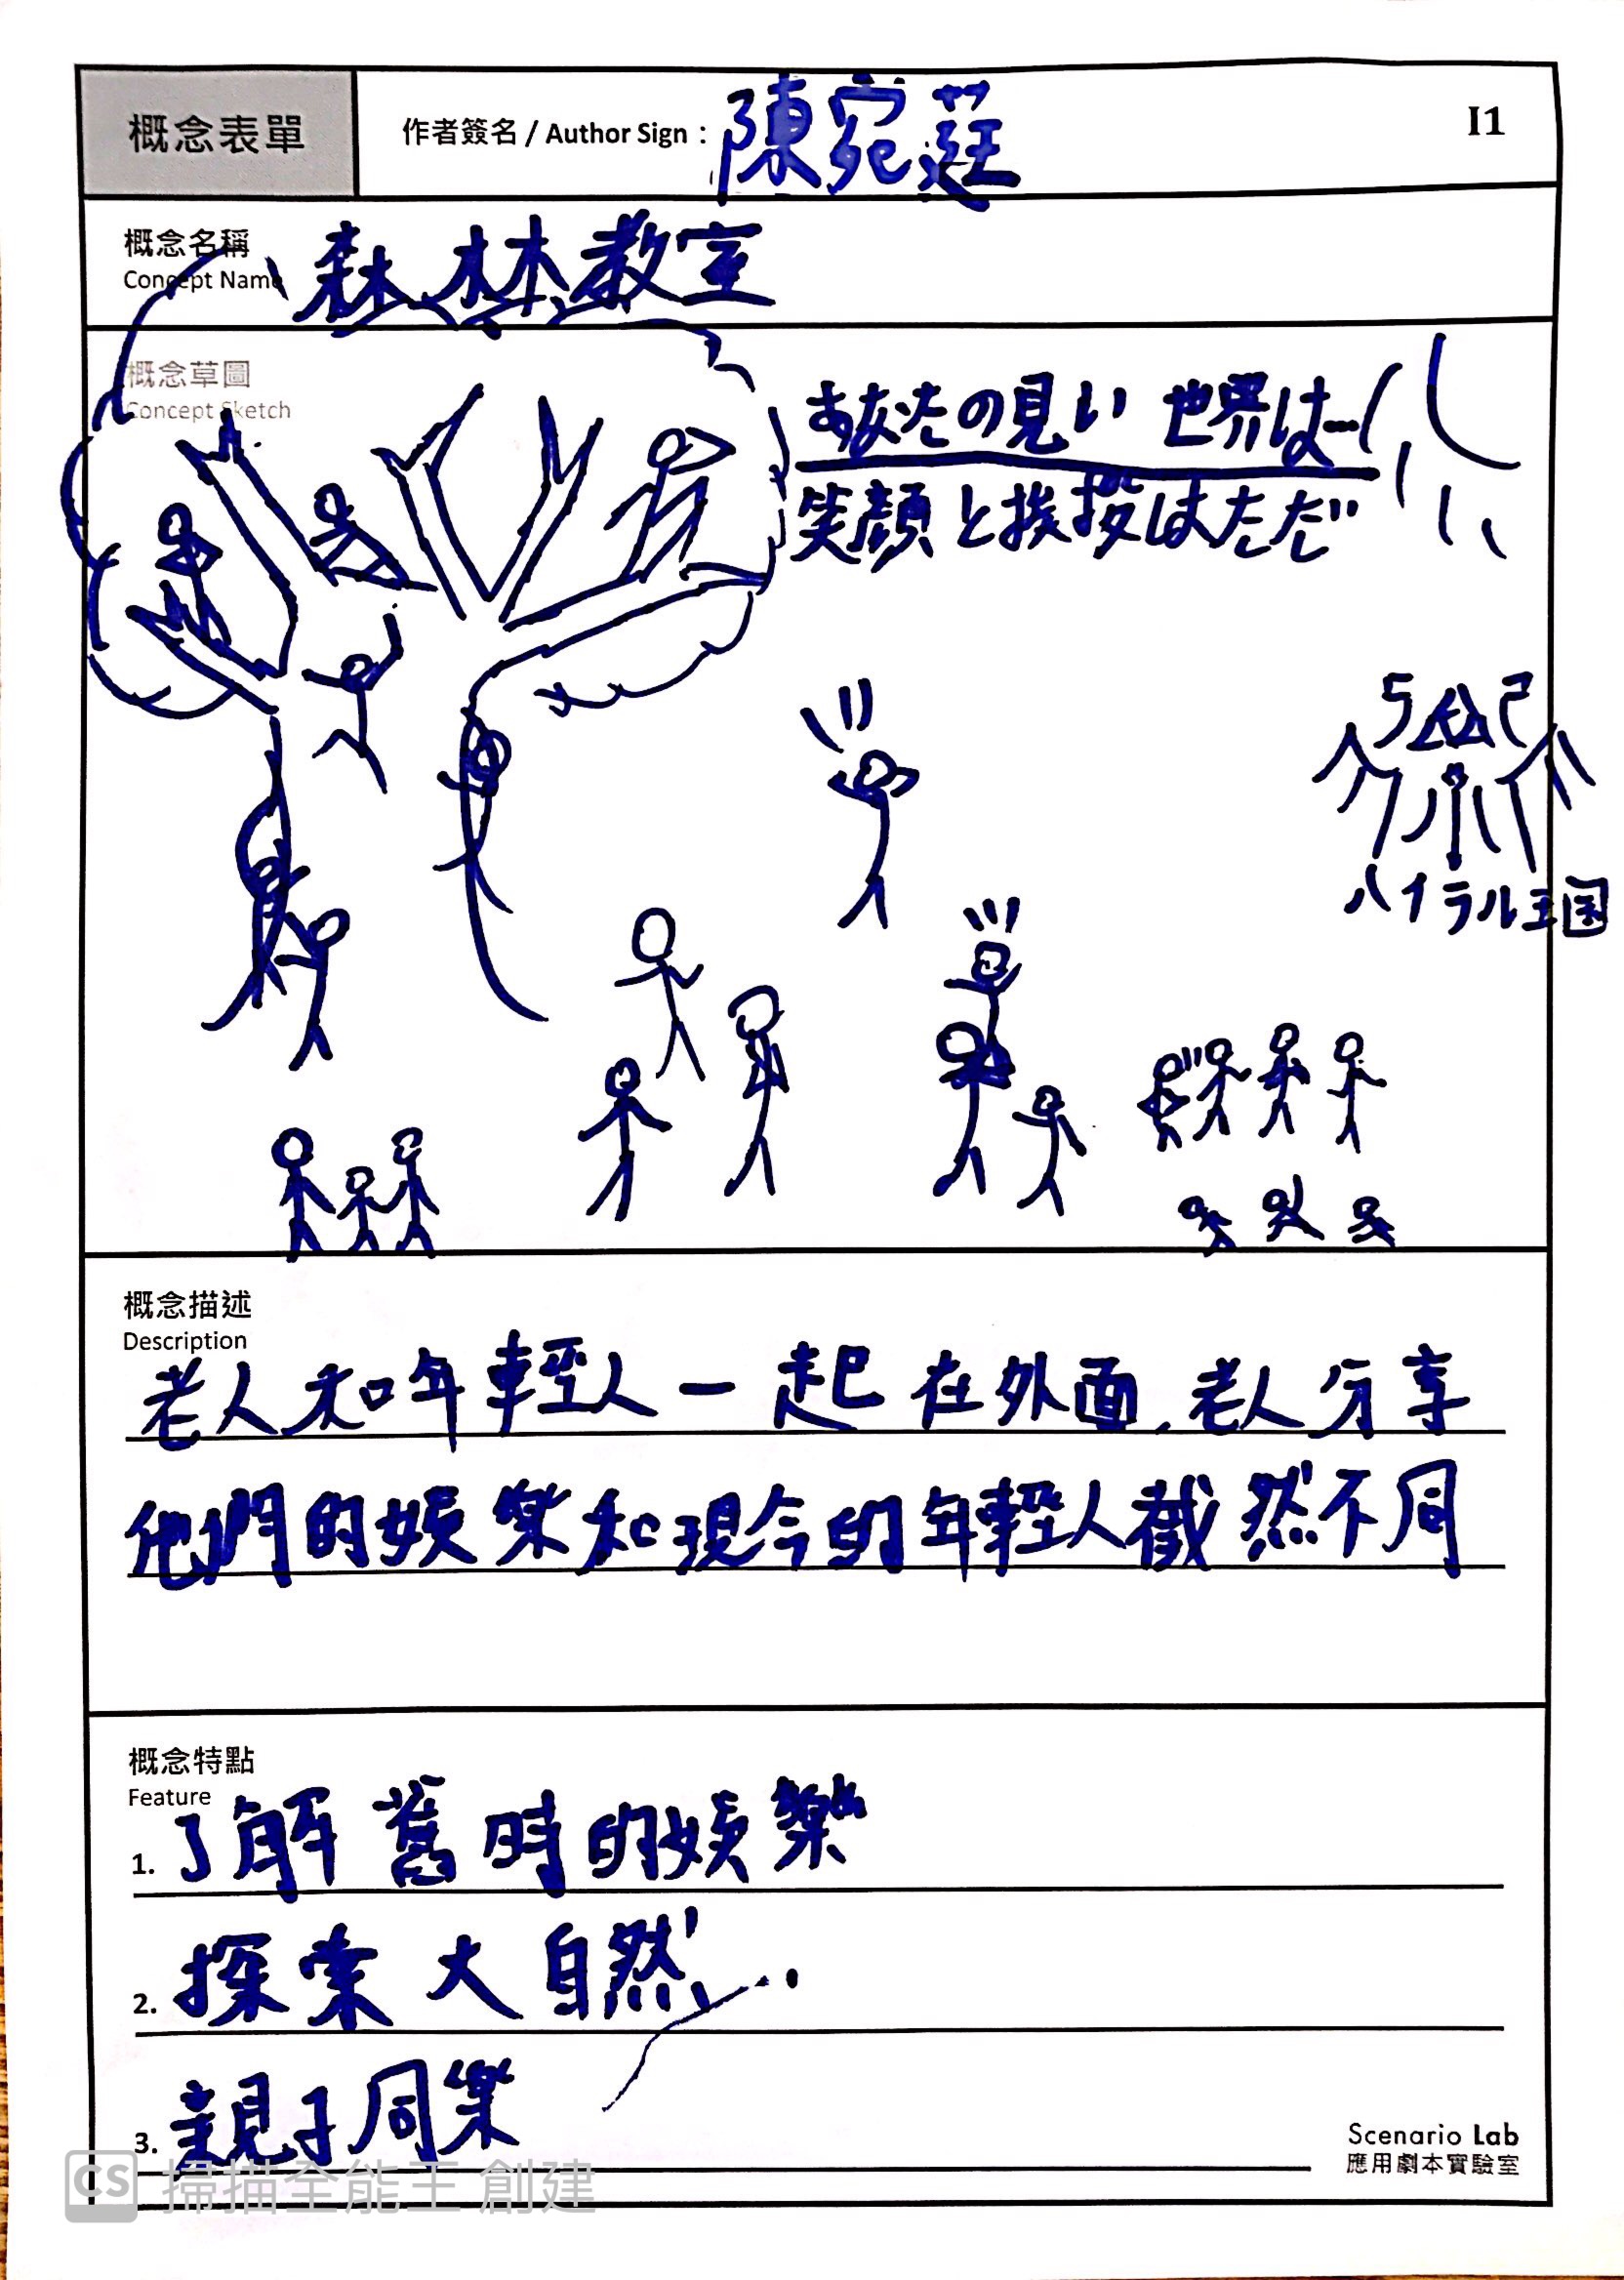 概念表單
作者簽名 / Author Sign : 陳宛莛
I1
概念名稱
Concept Name
森林教室
概念草圖
Concept Sketch
あなたの見い 世界は…
笑顔と挨拶はただ
ハイラル王国
概念描述
Description
老人和年輕人一起在外面,老人分享
他們的娛樂和現今的年輕人截然不同
概念特點
Feature
1. 了解舊時的娛樂
2. 探索大自然
3. 親子同樂
Scenario Lab
應用劇本實驗室
CS 掃描全能王 創建